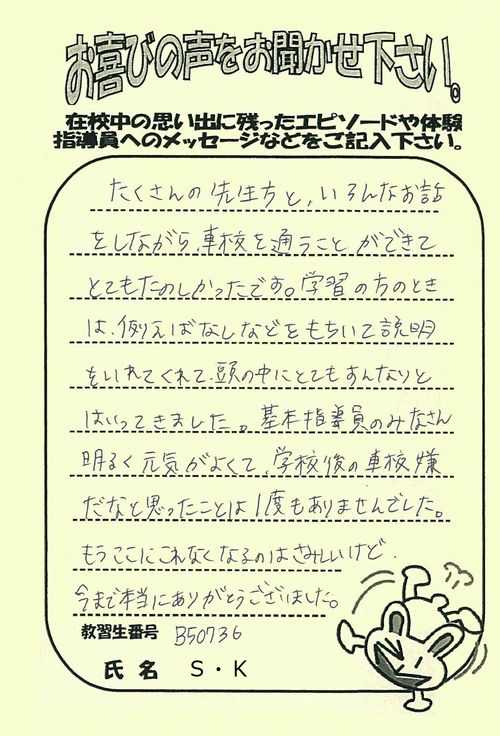 お喜びの声をお聞かせ下さい。
在校中の思い出に残ったエピソードや体験
指導員へのメッセージなどをご記入下さい。
たくさんの先生方と、いろんなお話
をしながら、車校を通うことができて
とてもたのしかったです。学習の方のとき
は、例えばなしなどをもちいて説明
をいれてくれて、頭の中にとてもすんなりと
はいってきました。基本指導員のみなさん
明るく元気がよくて、学校後の車校嫌
だなと思ったことは1度もありませんでした。
もうここにこれなくなるのはさみしいけど、
今まで本当にありがとうございました。
教習生番号 B50736
氏名 S・K